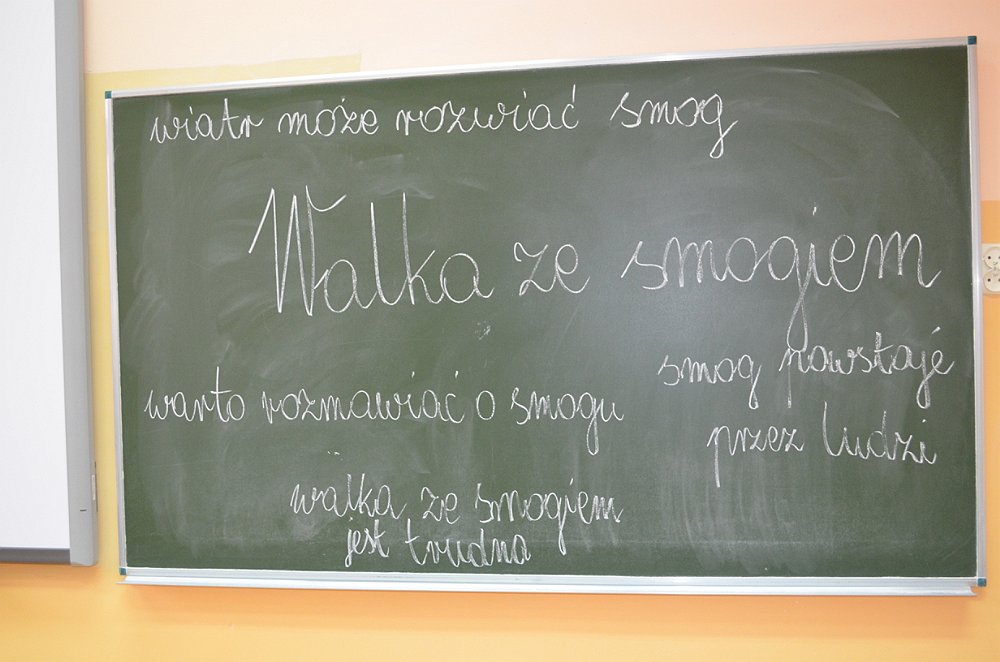 wiatr może rozwiać smog
Walka ze smogiem
smog powstaje
przez ludzi
warto rozmawiać o smogu
walka ze smogiem
jest trudna